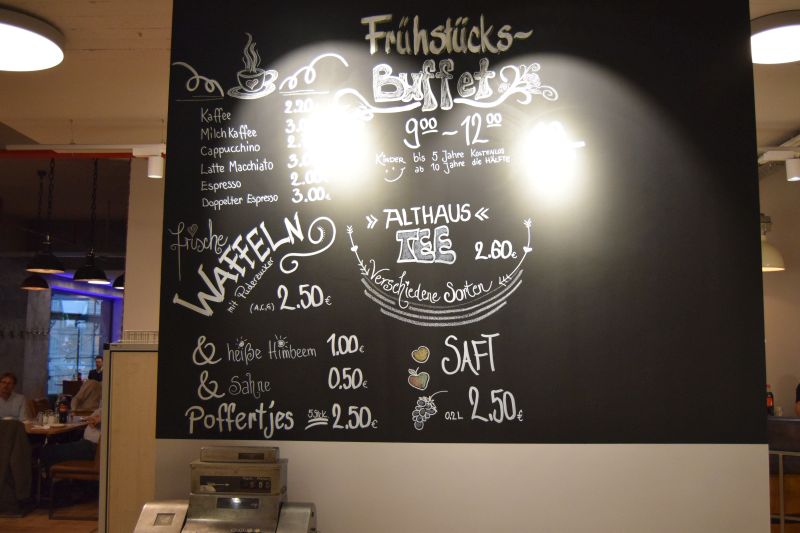 Frühstücks~
Buffet
9⁰⁰ ~ 12⁰⁰
Kinder bis 5 Jahre Kostenlos
ab 10 Jahre die Hälfte
Kaffee 2.20
Milch Kaffee
Cappucchino
Latte Macchiato
Espresso 2.00
Doppelter Espresso 3.00€
frische
WAFFELN
mit Puderzucker
(A,C,G) 2.50€
& heiße Himbeern 1.00€
& Sahne 0.50€
Poffertjes 5 Stk. 2.50€
» ALTHAUS «
TEE 2.60€
Verschiedene Sorten
SAFT
0.2L 2,50€